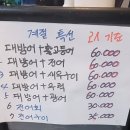 계절 특선 2人 기준
대방어+활고등어 60.000
대방어+전어 60.000
대방어+새우구이 60.000
대방어+우럭 60.000
대방어+광어 60.000
전어회 30.000
전어구이 35.000